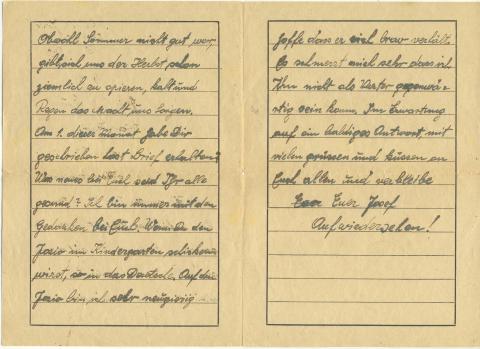 Obwohl Sommer nicht gut war,
gibt sich uns der Herbst schon
ziemlich zu spieren, kalt und
Regen das macht uns sorgen.
Am 1. dieser Monat habe Dir
geschrieben hast Brief erhalten?
Was neues bei Euch seid Ihr alle
gesund? Ich bin immer mit den
Gedanken bei Euch. Wenn Du den
Jozio im Kindergarten schicken
wirst, so in das Deutsche. Auf den
Jozio bin ich sehr neugierig
hoffe dass er sich brav verhält.
Es schmerzt mich sehr dass ich
Ihm nicht als Vater gegenwär-
tig sein kann. Im Erwartung
auf ein baldiges Antwort mit
vielen grüssen und küssen an
Euch allen und verbleibe
Euer Josef
Aufwiedersehen!